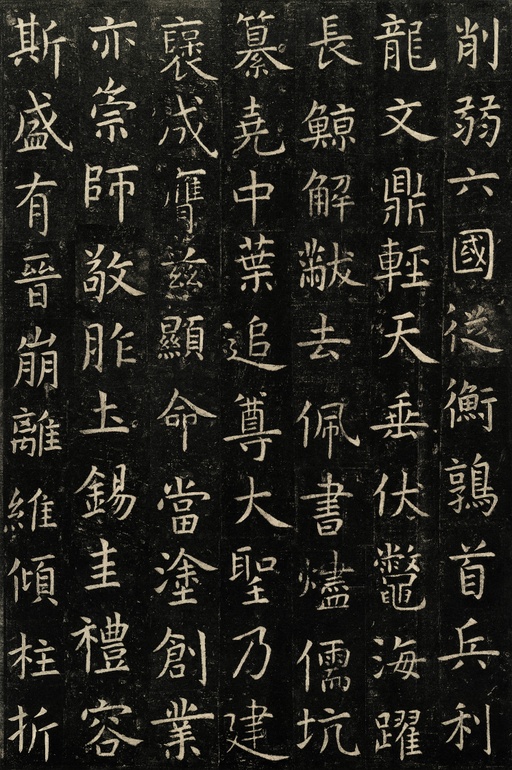 削弱六國從衡鶉首兵利
龍文鼎輕天垂伏鼈海躍
長鯨解黻去佩書燼儒坑
纂堯中葉追尊大聖乃建
褒成膺兹顯命當塗創業
亦崇師敬胙土錫圭禮容
斯盛有晉崩離維傾柱折